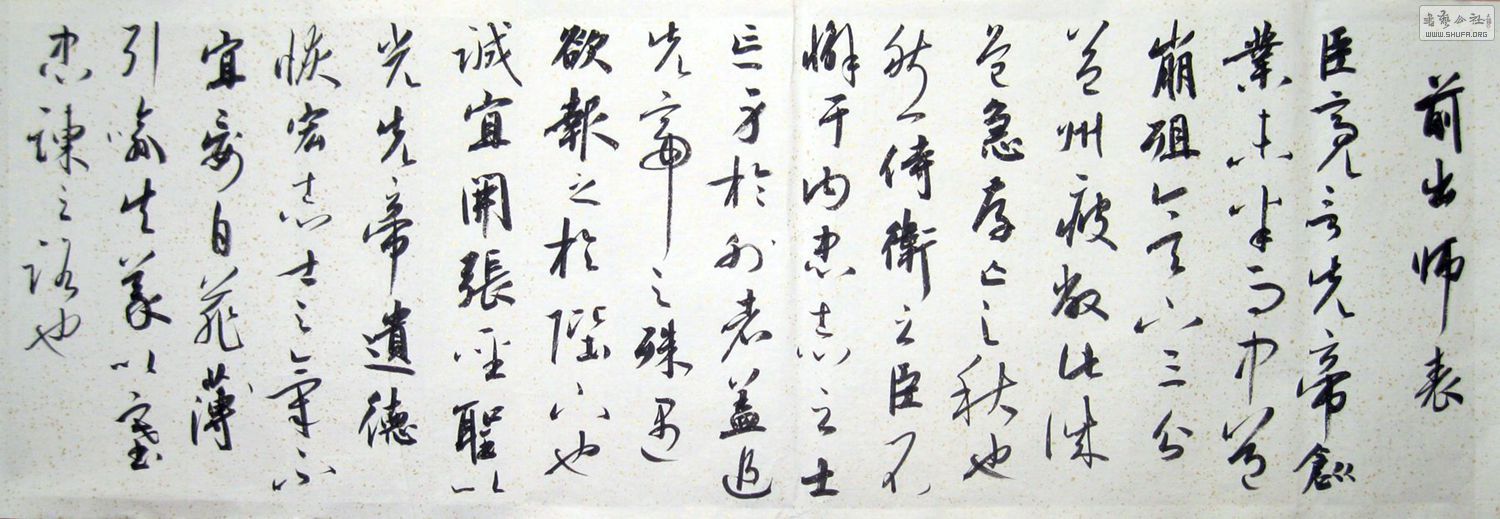 前出师表
臣亮言先帝創
業未半而中道
崩殂今天下三分
益州疲敝此誠
危急存亡之秋也
然侍衛之臣不
懈于内忠志之士
亡身於外者蓋追
先帝之殊遇
欲報之於陛下也
誠宜開張聖聽以
光先帝遺德
恢宏志士之氣不
宜妄自菲薄
引喻失義以塞
忠諫之路也
書藝公社
WWW.SHUFA.ORG